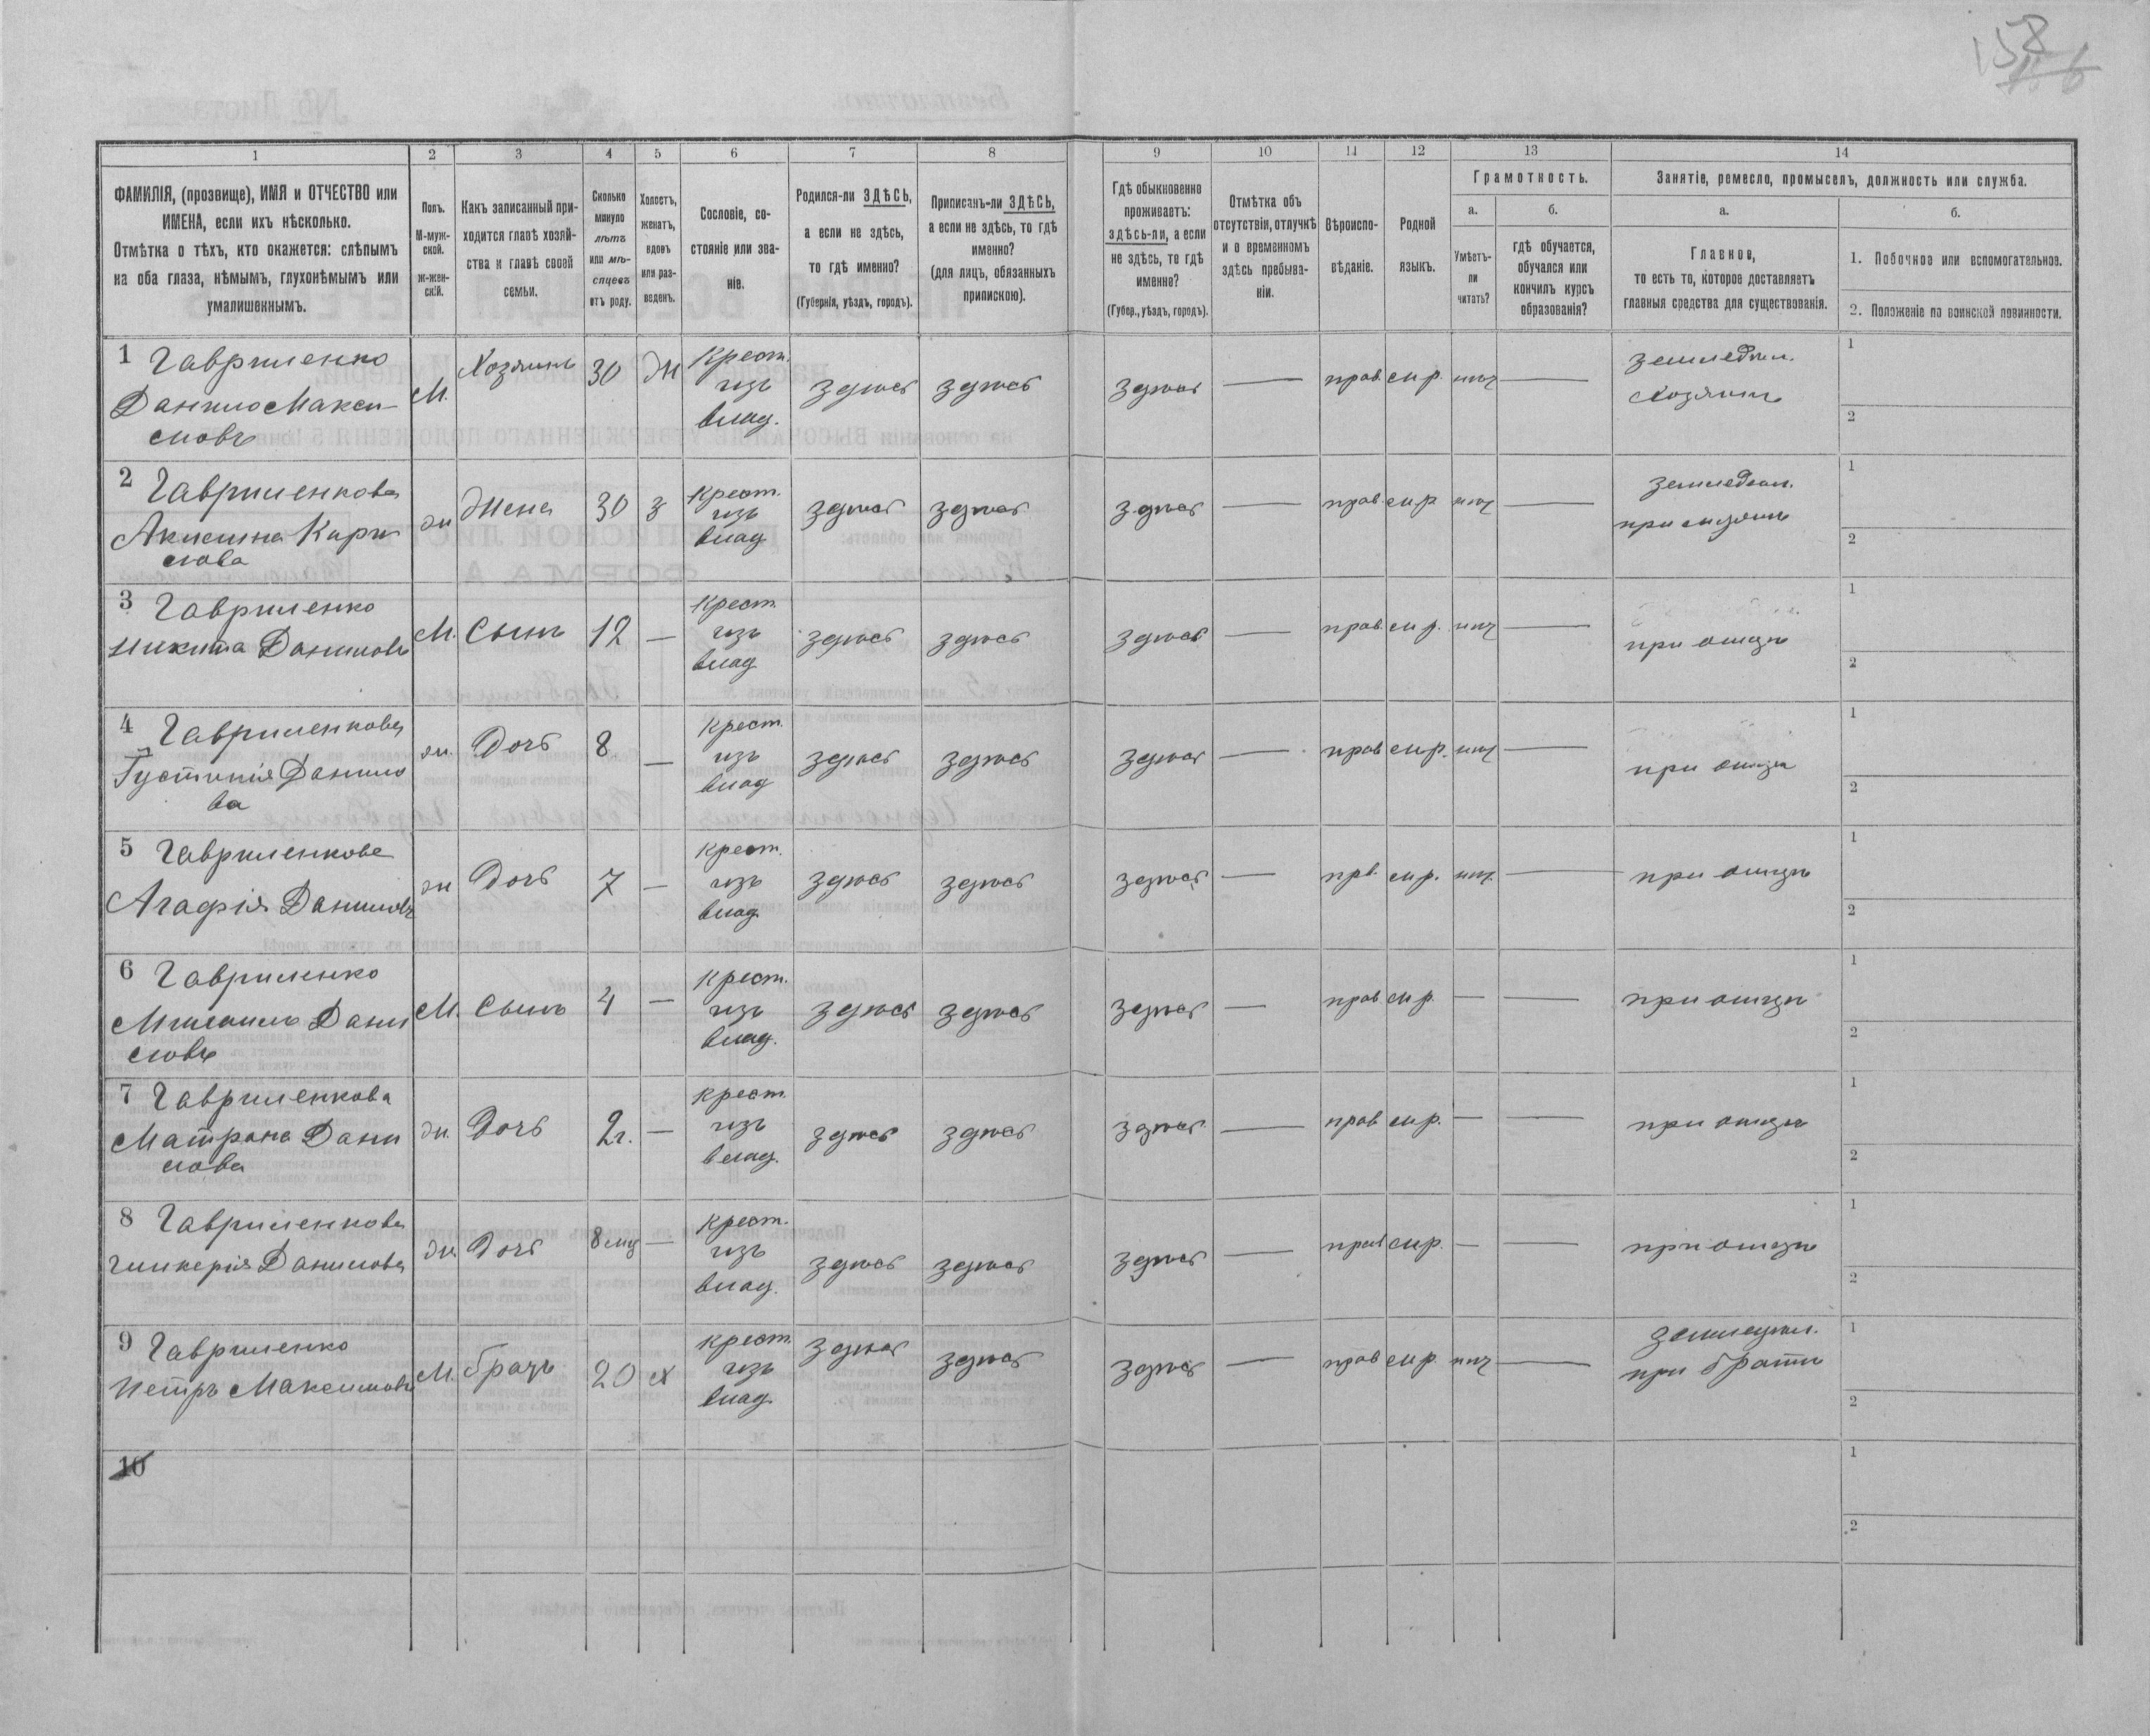 158
1 2 3 4 5 6 7 8 9 10 11 12 13 14
ФАМИЛІЯ, (прозвище), ИМЯ и ОТЧЕСТВО или
ИМЕНА, если ихъ нѣсколько.
Отмѣтка о тѣхъ, кто окажется: слѣпымъ
на оба глаза, нѣмымъ, глухонѣмымъ или
умалишеннымъ.
Полъ.
М-муж-
ской.
Ж-жен-
скій.
Какъ записанный при-
ходится главѣ хозяй-
ства и главѣ своей
семьи.
Сколько
минуло
лѣтъ
или мѣ-
сяцевъ
отъ роду.
Холостъ,
женатъ,
вдовъ
или раз-
веденъ.
Сословіе, со-
стояніе или зва-
ніе.
Родился-ли ЗДѢСЬ,
а если не здѣсь,
то гдѣ именно?
(Губернія, уѣздъ, городъ).
Приписанъ-ли ЗДѢСЬ,
а если не здѣсь, то гдѣ
именно?
(для лицъ, обязанныхъ
припискою).
Гдѣ обыкновенно
проживаетъ:
здѣсь-ли, а если
не здѣсь, то гдѣ
именно?
(Губер., уѣздъ, городъ).
Отмѣтка объ
отсутствіи, отлучкѣ
и о временномъ
здѣсь пребыва-
ніи.
Вѣроиспо-
вѣданіе.
Родной
языкъ.
Грамотность.
а.
Умѣетъ-
ли
читать?
б.
гдѣ обучается,
обучался или
кончилъ курсъ
образованія?
Занятіе, ремесло, промыселъ, должность или служба.
а.
Главное,
то есть то, которое доставляетъ
главныя средства для существованія.
б.
1. Побочное или вспомогательное.
2. Положеніе по воинской повинности.
1 Гавриленко
Данило Макси-
мовъ
М. Хозяинъ 30 Ж
Крест.
изъ
влад.
здѣсь здѣсь здѣсь — прав. мр. нѣт —
земледѣл.
Хозяинъ
1
2
2 Гавриленкова
Акилина Кири
лова
ж Жена 30 З
Крест.
изъ
влад
здѣсь здѣсь здѣсь — прав. мр. нѣт —
земледѣл.
при мужѣ
1
2
3 Гавриленко
Никита Даниловъ
М. Сынъ 12 —
Крест
изъ
влад
здѣсь здѣсь здѣсь — прав. мр. нѣт —
при отцѣ
1
2
4 Гавриленкова
Густинія Данило
ва
ж. Дочь 8 —
Крест.
изъ
влад
здѣсь здѣсь здѣсь — прав мр. нѣт —
при отцѣ
1
2
5 Гавриленкова
Агафія Данилов
ж Дочь 7 —
Крест.
изъ
влад.
здѣсь здѣсь здѣсь — прв. мр. нѣт. —
при отцѣ
1
2
6 Гавриленко
Дани
ловъ
М. Сынъ 4 —
Крест.
изъ
влад.
здѣсь здѣсь здѣсь — прав. мр. — —
при отцѣ
1
2
7 Гавриленкова
Матрона Дани
лова
ж. Дочь 2 г. —
Крест.
изъ
влад.
здѣсь здѣсь здѣсь — прав мр. — —
при отцѣ
1
2
8 Гавриленкова
Гликерія Данилова
ж. Дочь 8 мц —
Крест.
изъ
влад.
здѣсь здѣсь здѣсь — прав мр. — —
при отцѣ
1
2
9 Гавриленко
Петръ Максимовъ
М. братъ 20 Х
Крест.
изъ
влад.
здѣсь здѣсь здѣсь — прав мр. нѣт —
земледѣл.
при братѣ
1
2
10
1
2